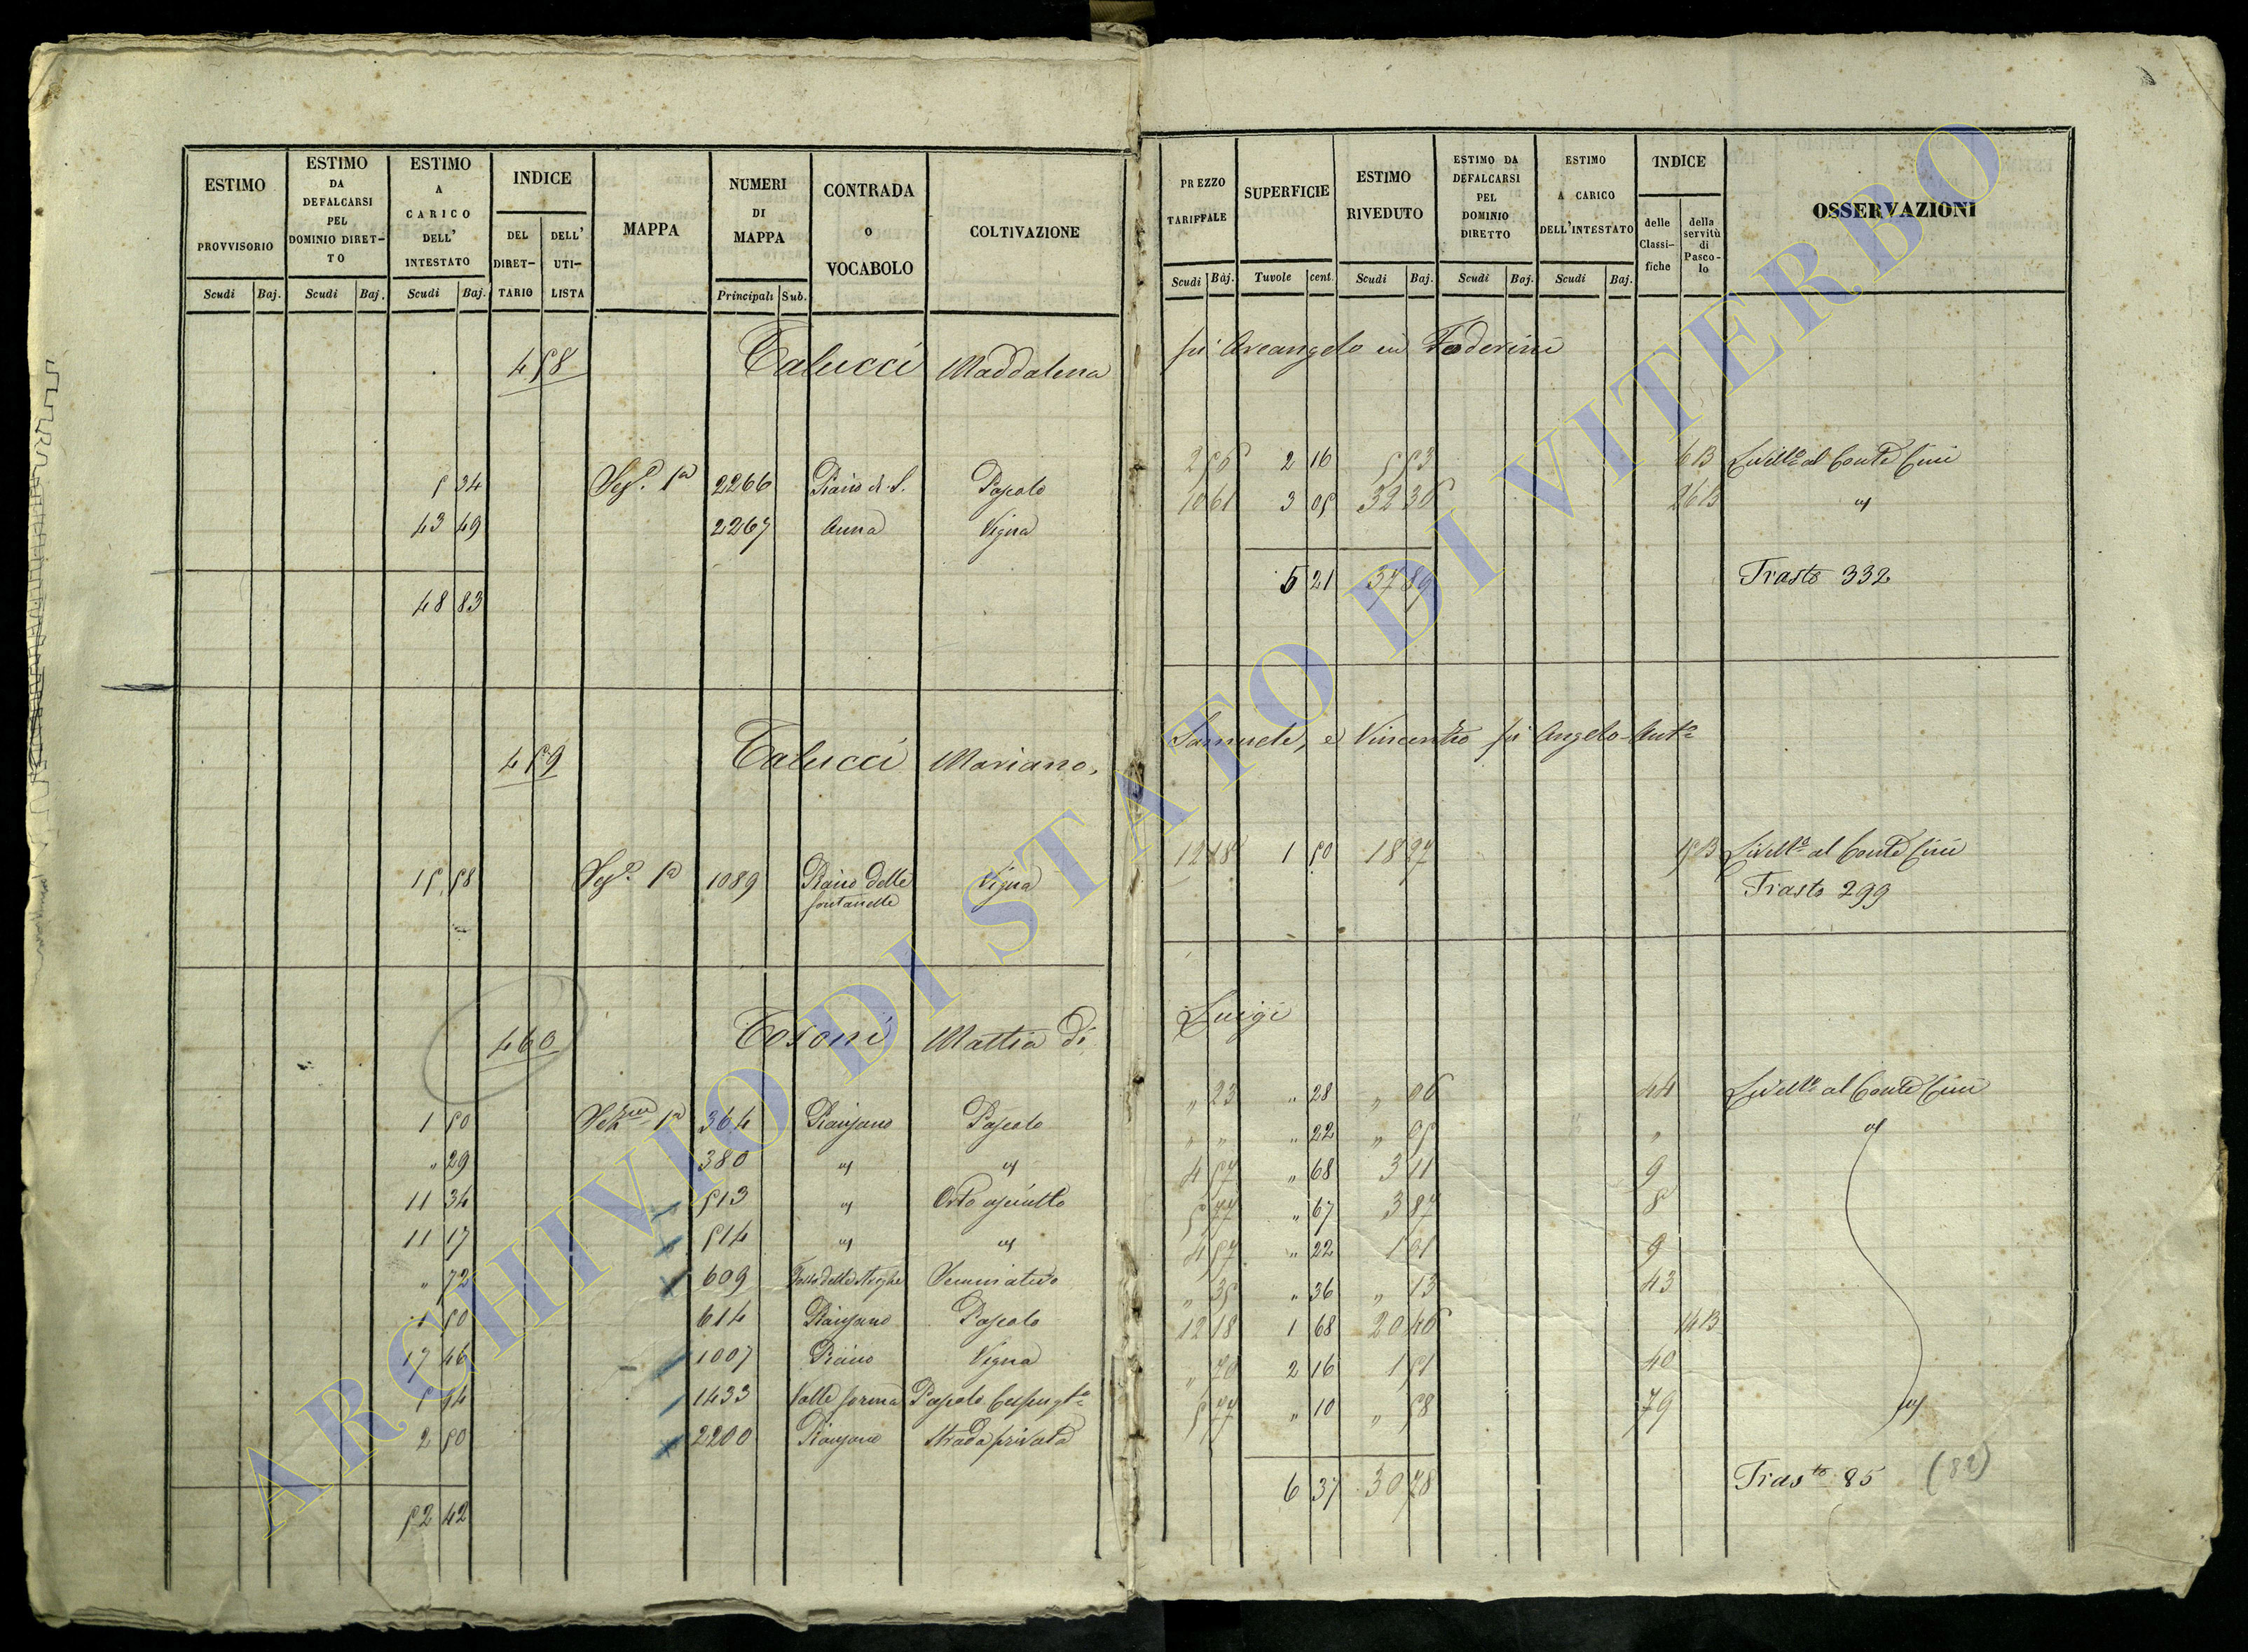 ESTIMO PROVVISORIO
ESTIMO DA DEFALCARSI PEL DOMINIO DIRET-TO
ESTIMO A CARICO DELL' INTESTATO
INDICE
DEL DIRET-TARIO
DELL' UTI-LISTA
MAPPA
NUMERI DI MAPPA
CONTRADA O VOCABOLO
COLTIVAZIONE
PREZZO TARIFFALE
SUPERFICIE
ESTIMO RIVEDUTO
ESTIMO DA DEFALCARSI PEL DOMINIO DIRETTO
ESTIMO A CARICO DELL'INTESTATO
INDICE
delle Classi-fiche
della servitù di Pasco-lo
OSSERVAZIONI
Scudi Baj. Scudi Baj. Scudi Baj. Principali Sub.
Scudi Baj. Tavole cent. Scudi Baj. Scudi Baj. Scudi Baj.
458 Talucci Maddalena fu Arcangelo in Foderini
5 34 Sez.e 1a 2266 Piano di S. Pascolo 2 56 2 16 5 53 6 B Livell.o al Conte Cini
43 49 2267 Anna Vigna 10 61 3 05 32 36 26 B "
48 83 5 21 37 89 Trasto 332
459 Talucci Mariano, Samuele, e Vincenzo fu Angelo Ant.o
15 58 Sez.e 1a 1089 Piano delle fontanelle Vigna 12 18 1 50 18 27 15 B Livell.o al Conte Cini
Trasto 299
460 Tosoni Mattia di Luigi
1 50 1a 364 Piansano Pascolo " 23 " 28 " 06 44 Livell.o al Conte Cini
" 29 380 " " " " " 22 " 05 " "
11 34 513 " Orto asciutto 4 57 " 68 3 11 9
11 17 514 " " 5 77 " 67 3 87 8
" 72 609 Fosso delle Streghe Seminativo 4 57 " 22 1 01 9
1 50 614 Piansano Pascolo " 35 " 36 " 13 43
17 46 1007 Piano Vigna 12 18 1 68 20 46 14 B
5 94 1433 Valle forma Pascolo Cespugl.o " 70 2 16 1 51 40
2 50 2200 Piansano Strada privata 5 77 " 10 " 58 79 "
52 42 6 37 30 78 Tras.to 85 (82)
ARCHIVIO DI STATO DI VITERBO